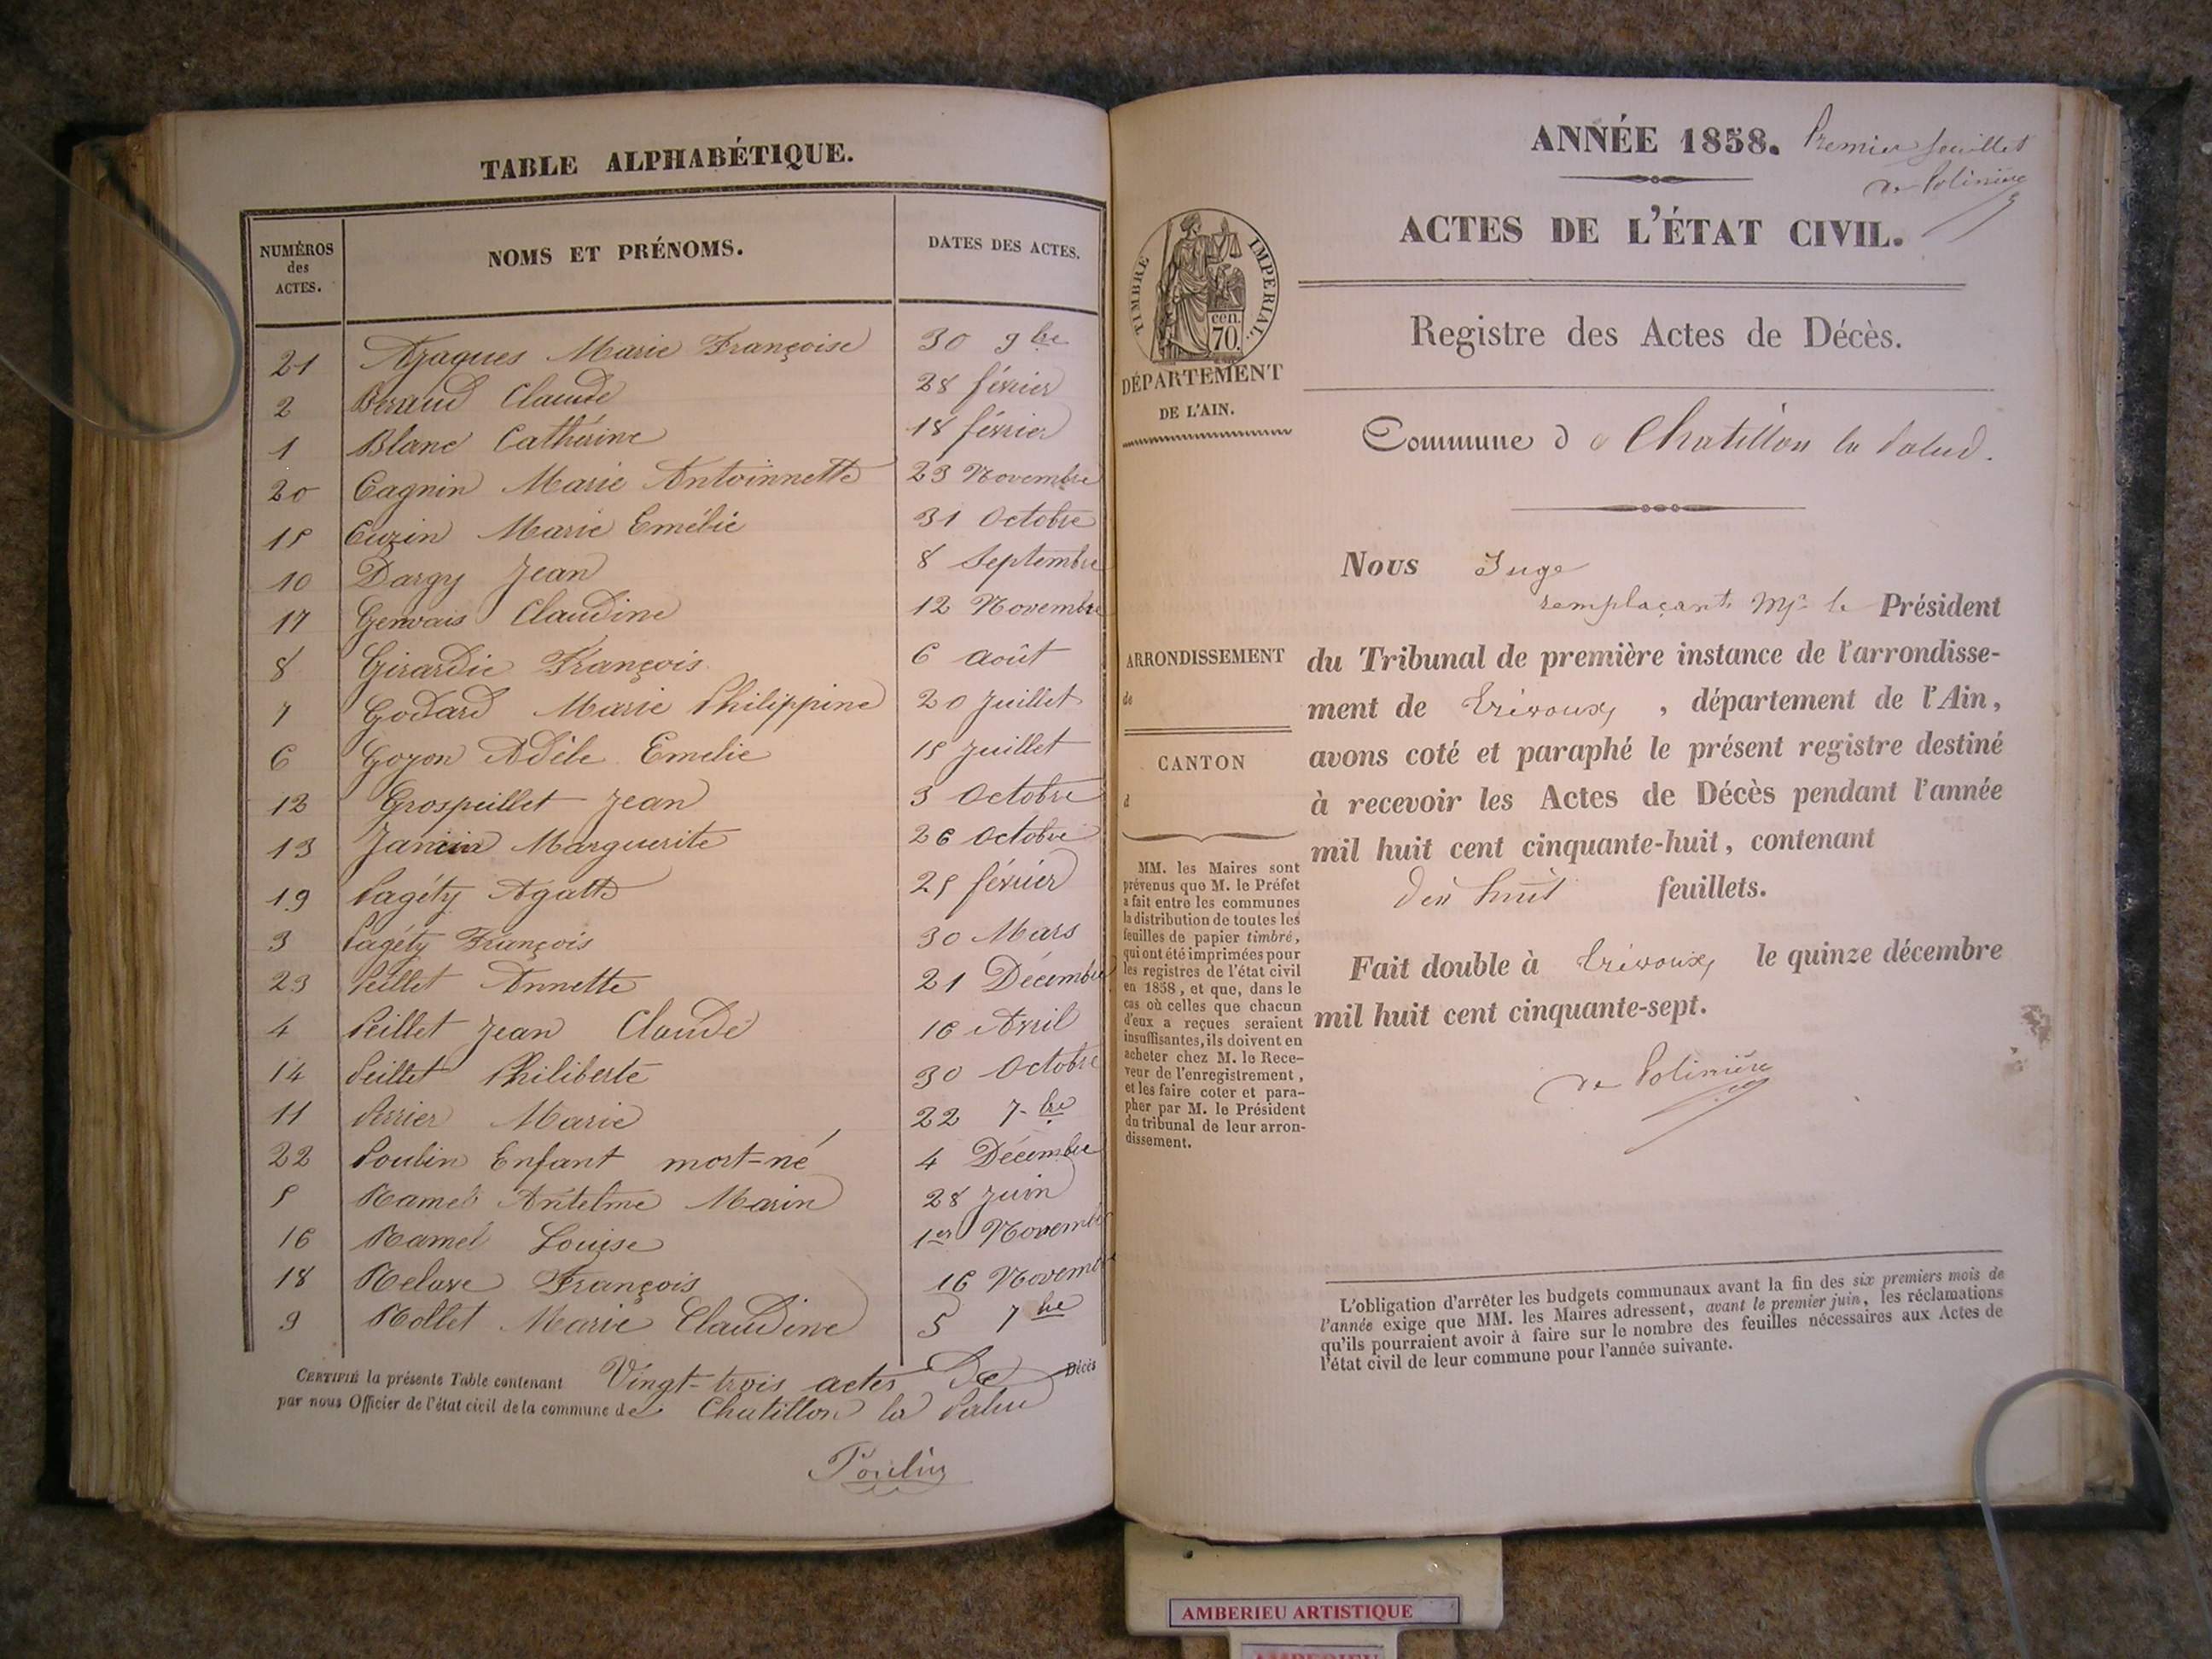 TABLE ALPHABÉTIQUE.
NUMÉROS des ACTES. NOMS ET PRÉNOMS. DATES DES ACTES.
21 Marie Françoise 30 9bre
2 Beraud Claude 28 février
1 Blanc Cathérine 18 février
20 Cagnin Marie Antoinnette 23 Novembre
15 Cuzin Marie Emélie 31 Octobre
10 Dargy Jean 8 Septembre
17 Gervais Claudine 12 Novembre
8 Girardie François 6 août
7 Godard Marie Philippine 20 Juillet
6 Goyon Adèle Emelie 15 Juillet
12 Grospeillet Jean 3 Octobre
13 Janin Marguerite 26 Octobre
19 Pagéty Agatte 25 février
3 Pagéty François 30 Mars
23 Peillet Annette 21 Décembre
4 Peillet Jean Claude 16 Avril
14 Peillet Philiberte 30 Octobre
11 Perrier Marie 22 7bre
22 Poulin Enfant mort-né 4 Décembre
5 Ramel Antelme Marin 28 Juin
16 Ramel Louise 1er Novembre
18 François 16 Novembre
9 Rollet Marie Claudine 5 7bre
CERTIFIÉ la présente Table contenant Vingt-trois actes De Décès
par nous Officier de l'état civil de la commune de Chatillon la Palud
Poulin
ANNÉE 1858. Premier feuillet
de Polinière
ACTES DE L'ÉTAT CIVIL.
TIMBRE IMPÉRIAL.
cen.
70.
DÉPARTEMENT
DE L'AIN.
Registre des Actes de Décès.
Commune de Chatillon la Palud.
ARRONDISSEMENT
de
CANTON
d
MM. les Maires sont
prévenus que M. le Préfet
a fait entre les communes
la distribution de toutes les
feuilles de papier timbré,
qui ont été imprimées pour
les registres de l'état civil
en 1858, et que, dans le
cas où celles que chacun
d'eux a reçues seraient
insuffisantes, ils doivent en
acheter chez M. le Rece-
veur de l'enregistrement,
et les faire coter et para-
pher par M. le Président
du tribunal de leur arron-
dissement.
Nous Juge
remplaçant Mr le Président
du Tribunal de première instance de l'arrondisse-
ment de Trévoux, département de l'Ain,
avons coté et paraphé le présent registre destiné
à recevoir les Actes de Décès pendant l'année
mil huit cent cinquante-huit, contenant
dix huit feuillets.
Fait double à Trévoux, le quinze décembre
mil huit cent cinquante-sept.
de Polinière
L'obligation d'arrêter les budgets communaux avant la fin des six premiers mois de
l'année exige que MM. les Maires adressent, avant le premier juin, les réclamations
qu'ils pourraient avoir à faire sur le nombre des feuilles nécessaires aux Actes de
l'état civil de leur commune pour l'année suivante.
AMBERIEU ARTISTIQUE
AMBERIEU